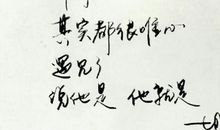 其实都很唯心
遇见了
说他是 他就是